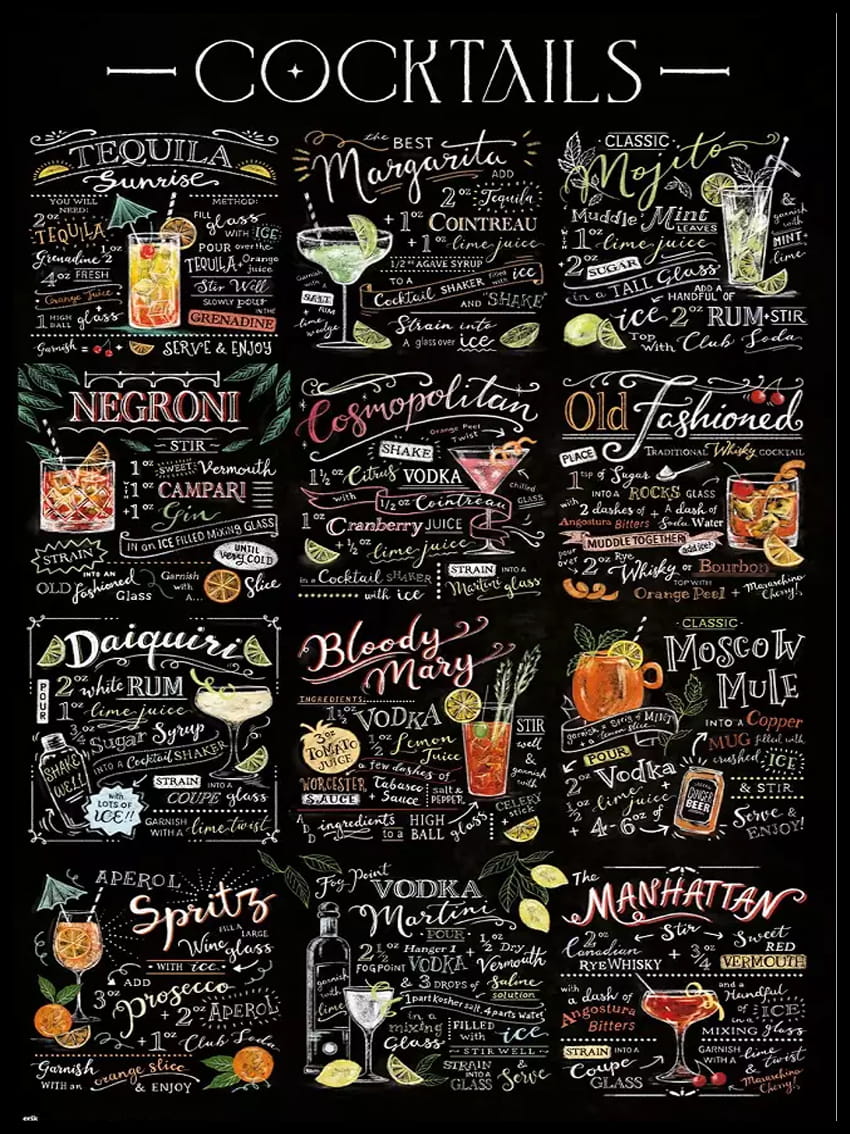 COCKTAILS
TEQUILA
Sunrise
YOU WILL NEED:
2oz TEQUILA
Grenadine 1/2 oz
4oz FRESH
Orange Juice
1 HIGH BALL glass
METHOD:
FILL glass
WITH ICE
POUR over the
TEQUILA + Orange juice
Stir Well
SLOWLY pour
IN THE
GRENADINE
Garnish = + SERVE & ENJOY
the BEST
Margarita
ADD
2oz Tequila
+ 1oz COINTREAU
+ 1oz lime juice
1/2 oz AGAVE SYRUP
TO A
Cocktail SHAKER filled with ice
AND "SHAKE"
Garnish with a
SALT
RUM
+ lime wedge
Strain into
A glass over ice
CLASSIC
Mojito
Muddle Mint LEAVES
WITH 1oz lime juice
+ 2oz SUGAR
in a TALL Glass
ADD A
HANDFUL OF
ice 2oz RUM + STIR
Top With Club Soda
& garnish with MINT + lime
NEGRONI
STIR
1oz SWEET Vermouth
1oz CAMPARI
+ 1oz Gin
IN an ICE FILLED MIXING GLASS
STRAIN
UNTIL very COLD
INTO AN
OLD fashioned Glass
Garnish with A... Slice
Cosmopolitan
Orange Peel Twist
SHAKE
1 1/2 oz Citrus VODKA
with 1/2 oz Cointreau
chilled GLASS
1oz Cranberry JUICE
+ 1/2 oz lime juice
in a Cocktail SHAKER
with ice
STRAIN INTO A
Martini glass
Old Fashioned
PLACE
TRADITIONAL Whisky COCKTAIL
1 tsp of Sugar
INTO A ROCKS GLASS
with 2 dashes of + A dash of
Angostura Bitters Soda Water
MUDDLE TOGETHER
add ice!
pour over 2oz Rye Whisky or Bourbon
TOP WITH
Orange Peel + Maraschino Cherry!
Daiquiri
POUR
2oz white RUM
1oz lime juice
3/4 oz Sugar Syrup
INTO A Cocktail SHAKER
SHAKE WELL
STRAIN INTO A
COUPE glass
with LOTS OF ICE!!
GARNISH WITH A lime twist
Bloody
Mary
INGREDIENTS
1 1/2 oz VODKA
3oz TOMATO JUICE
1/2 oz Lemon Juice
a few dashes of
WORCESTER SAUCE
Tabasco Sauce
salt & PEPPER
STIR well & garnish with
CELERY + stick
ADD ingredients to a HIGH BALL glass
CLASSIC
MOSCOW
MULE
garnish a sprig of MINT
+ a lemon slice
INTO A Copper
MUG filled with
crushed ICE
POUR
2oz Vodka
1/2 oz lime juice
+ 4-6oz of
GINGER BEER
& STIR
Serve & ENJOY!
APEROL
Spritz
FILL A LARGE
Wine glass
WITH ice
ADD
3oz Prosecco
+ 2oz APEROL
+ 1oz Club Soda
Garnish WITH an orange slice
& ENJOY
Fog Point
VODKA
Martini
POUR
2 1/2 oz Hanger 1 + 1/2 oz Dry
FOG POINT VODKA Vermouth
& 3 DROPS of Saline solution
1 part kosher salt, 4 parts water
garnish with lime
in a mixing Glass
FILLED with ice
STIR WELL
STRAIN INTO A GLASS & Serve
The
MANHATTAN
Stir
2oz Canadian RYE WHISKY
+ 3/4 Sweet RED VERMOUTH
with a dash of
Angostura Bitters
and a Handful of ICE
in a MIXING glass
STRAIN INTO A
Coupe GLASS
GARNISH WITH A lime twist
& Maraschino Cherry!